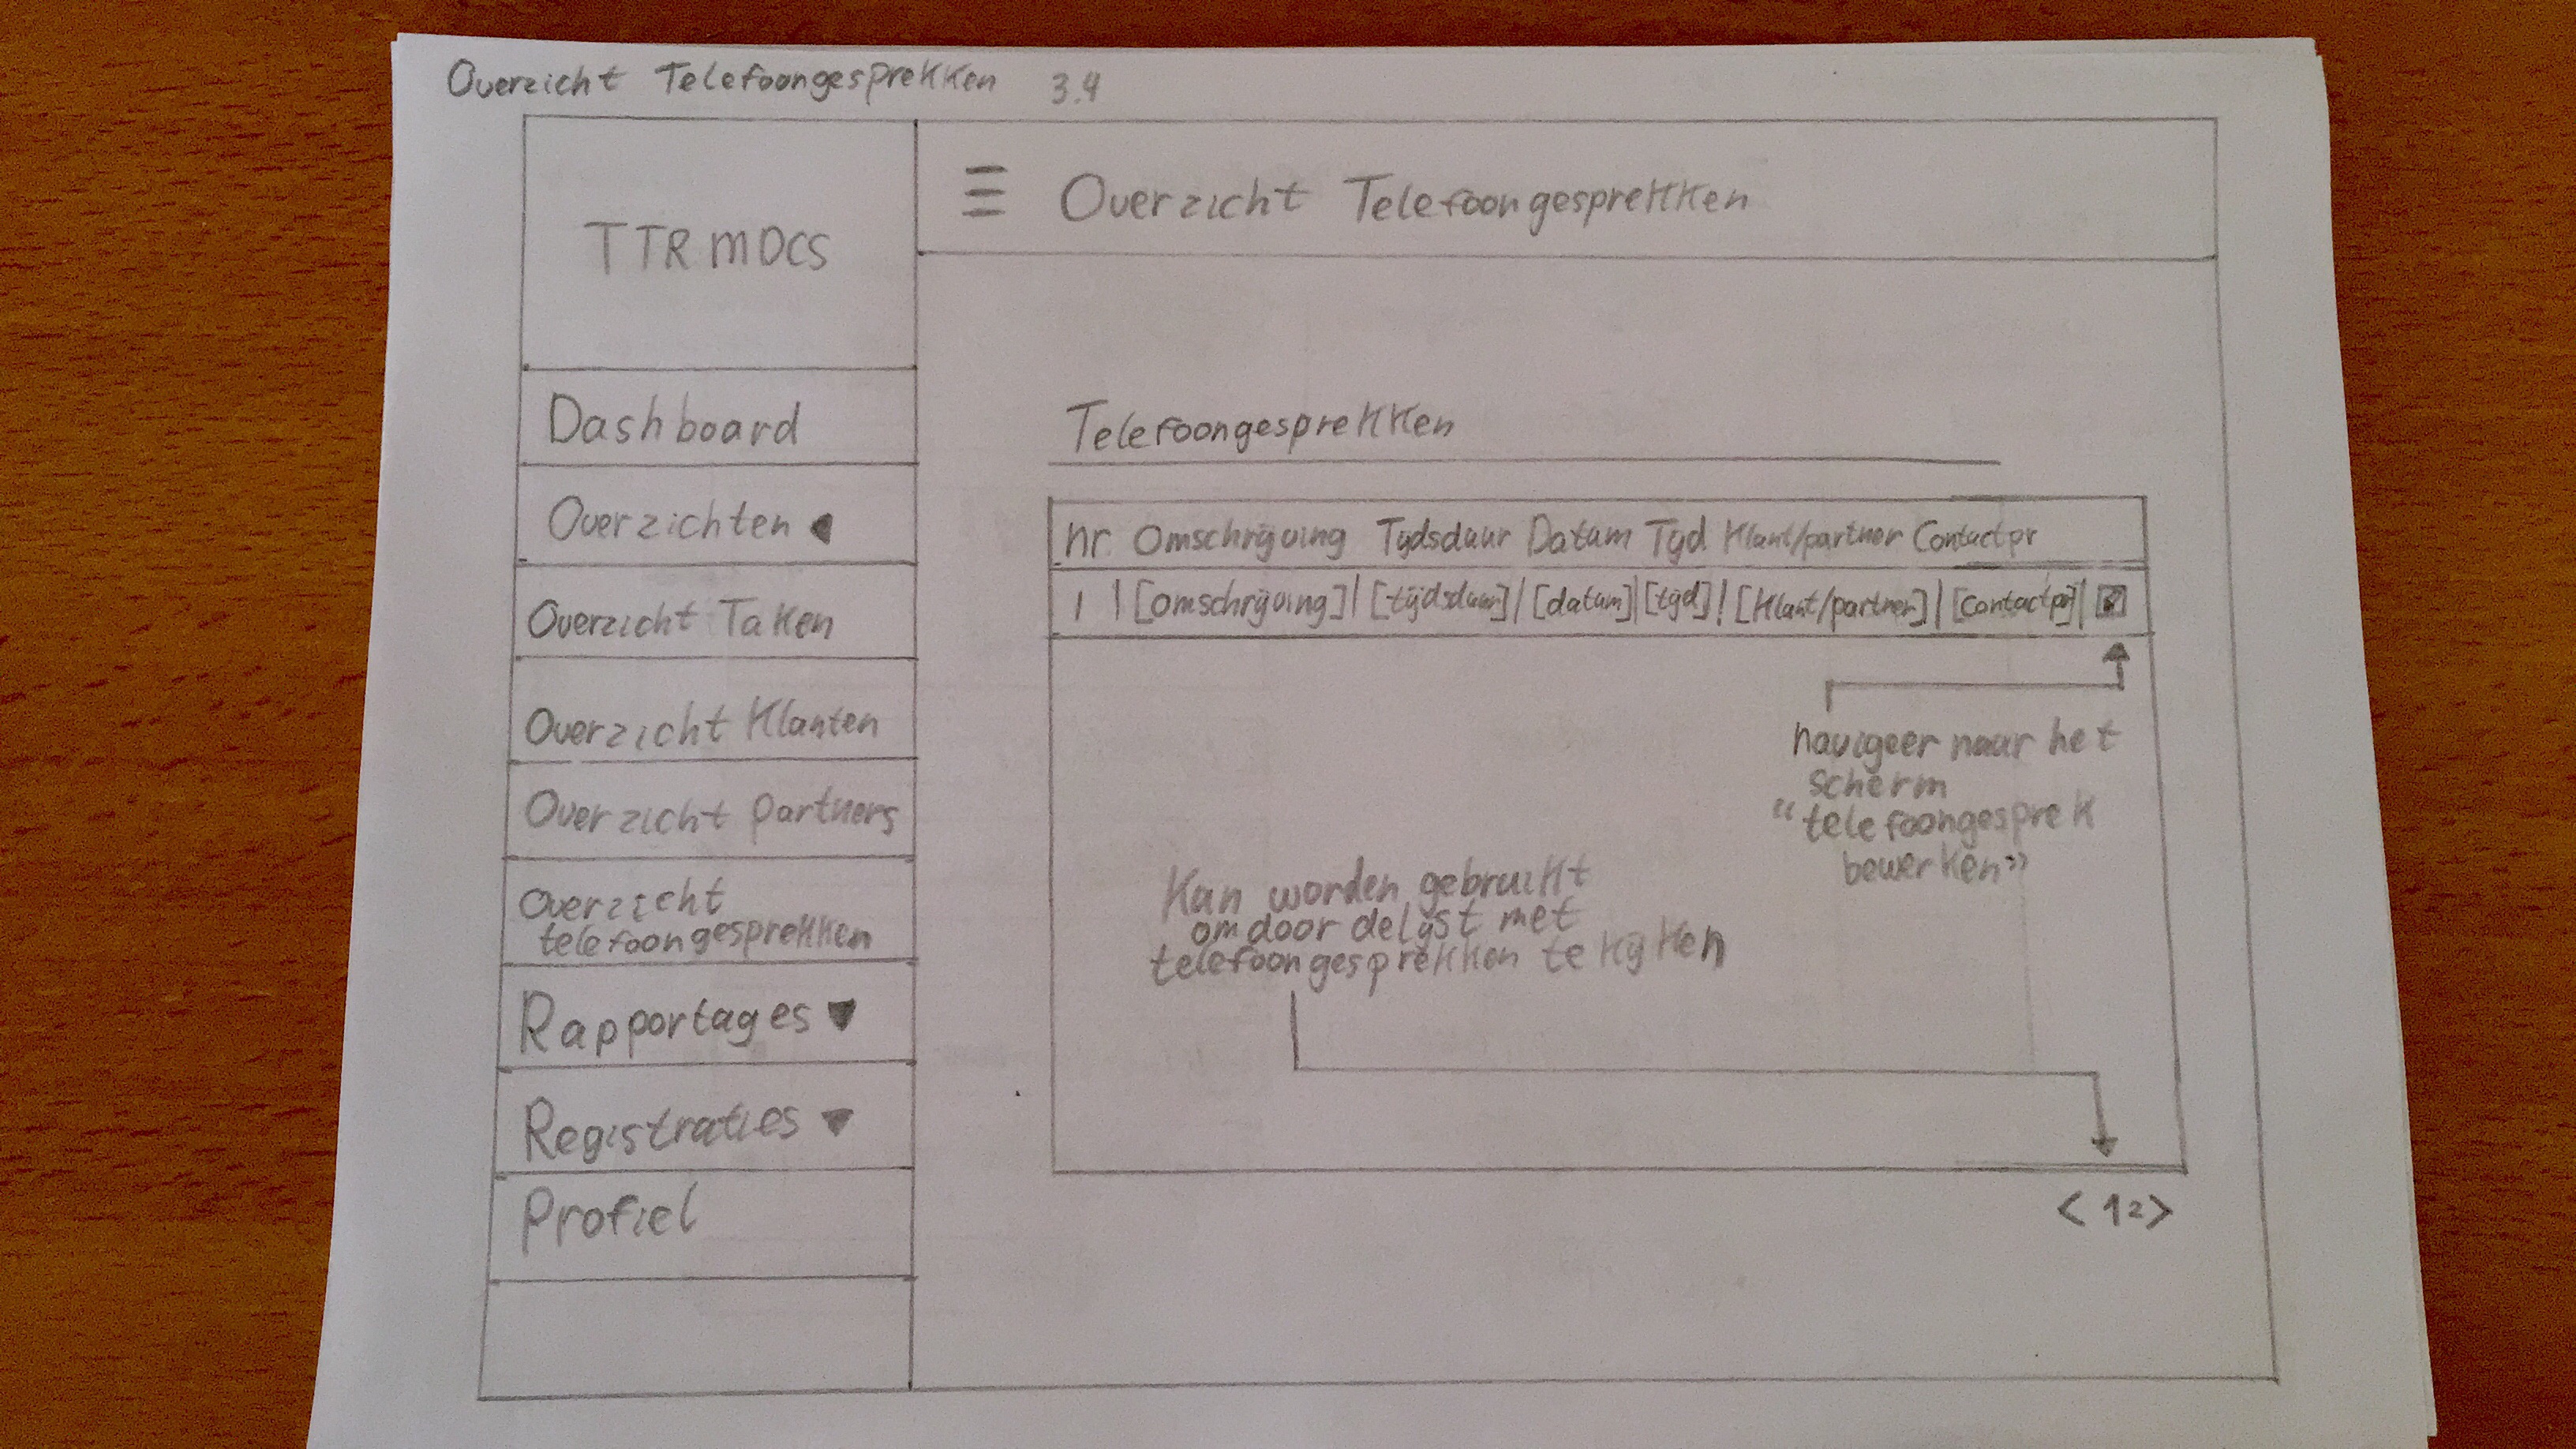 Overzicht Telefoongesprekken 3.4
TTR MDCS
☰ Overzicht Telefoongesprekken
Dashboard
Overzichten ◀
Overzicht Taken
Overzicht Klanten
Overzicht partners
Overzicht
telefoongesprekken
Rapportages ▼
Registraties ▼
Profiel
Telefoongesprekken
nr. Omschrijving Tijdsduur Datum Tijd Klant/partner Contactpr
1 | [omschrijving] | [tijdsduur] | [datum] | [tijd] | [Klant/partner] | [contactpr] |
navigeer naar het
scherm
"telefoongesprek
bewerken"
Kan worden gebruikt
om door de lijst met
telefoongesprekken te kijken
< 1 2 >